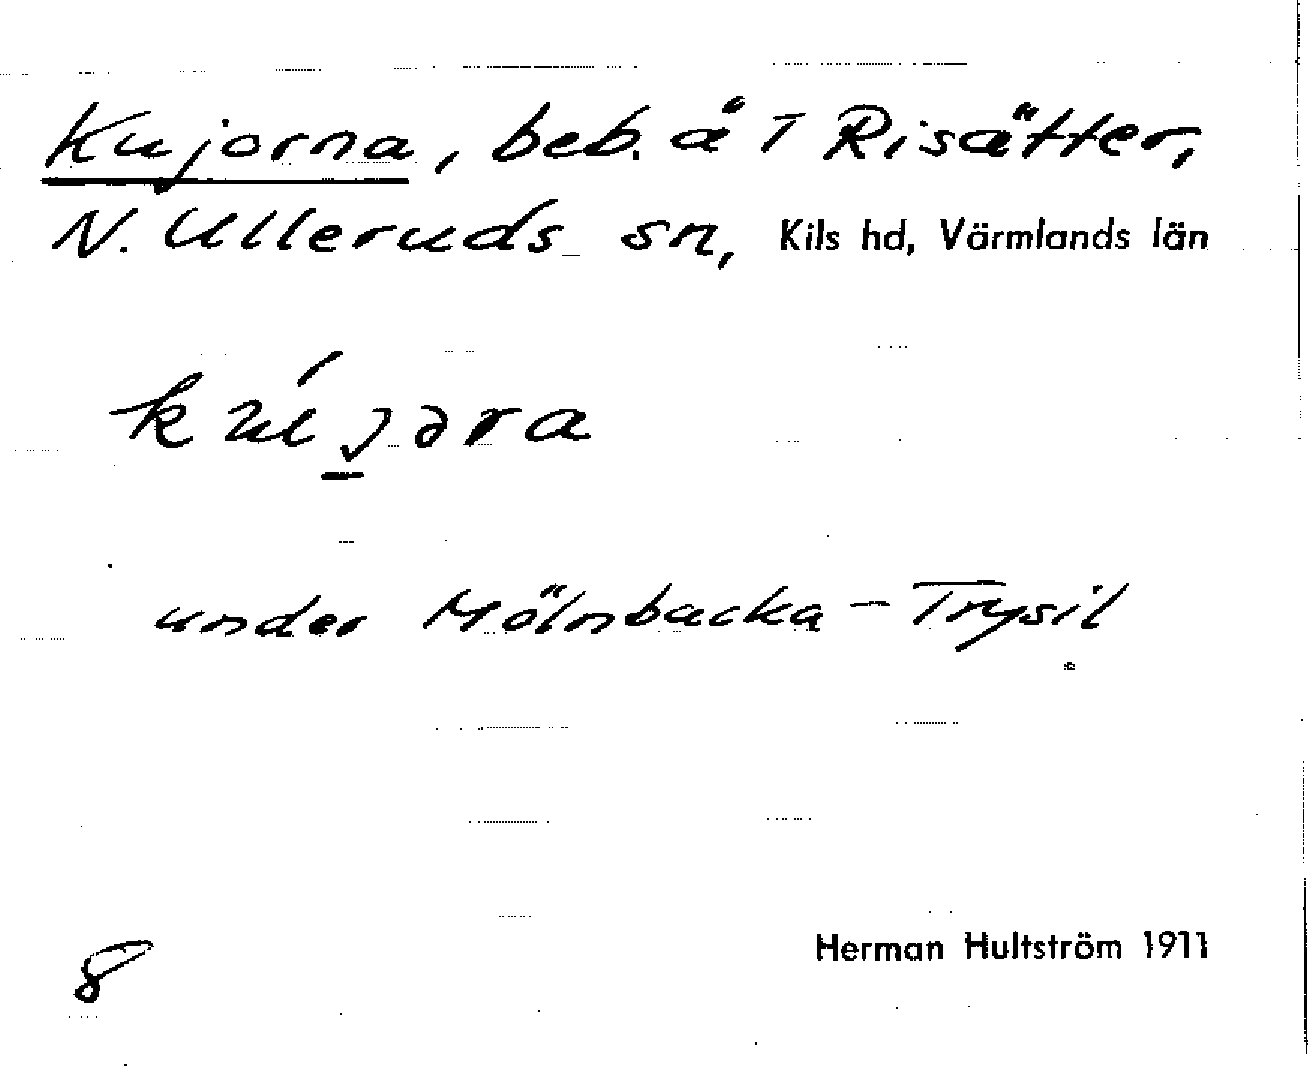 Kujorna, beb. å 1 Risätter,
N. Ulleruds sn, Kils hd, Värmlands län
kújəra
under Mölnbacka - Trysil
8
Herman Hultström 1911